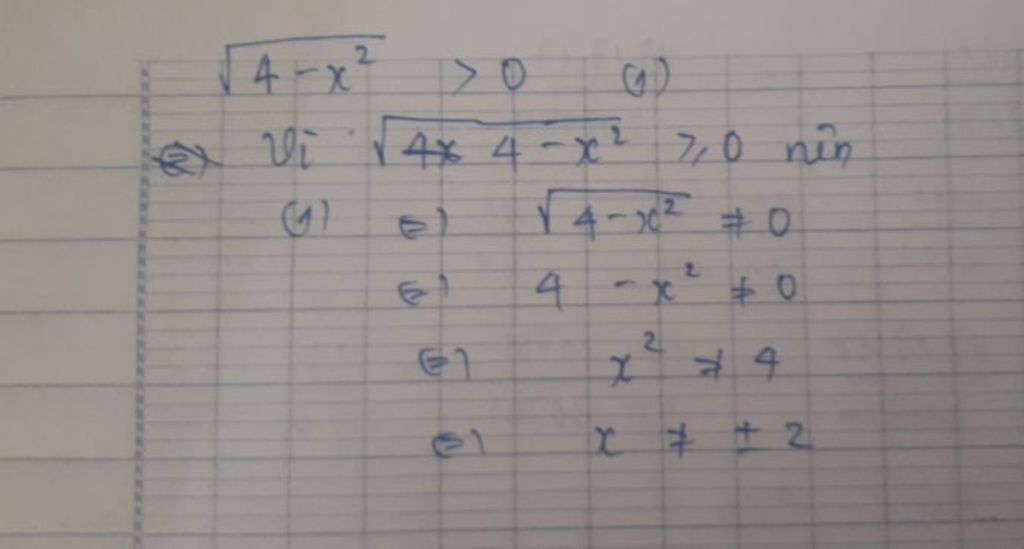 √(4 - x²) > 0 (1)
Vì √(4 - x²) ≥ 0 nên
(1) ⇔ √(4 - x²) ≠ 0
⇔ 4 - x² ≠ 0
⇔ x² ≠ 4
⇔ x ≠ ± 2